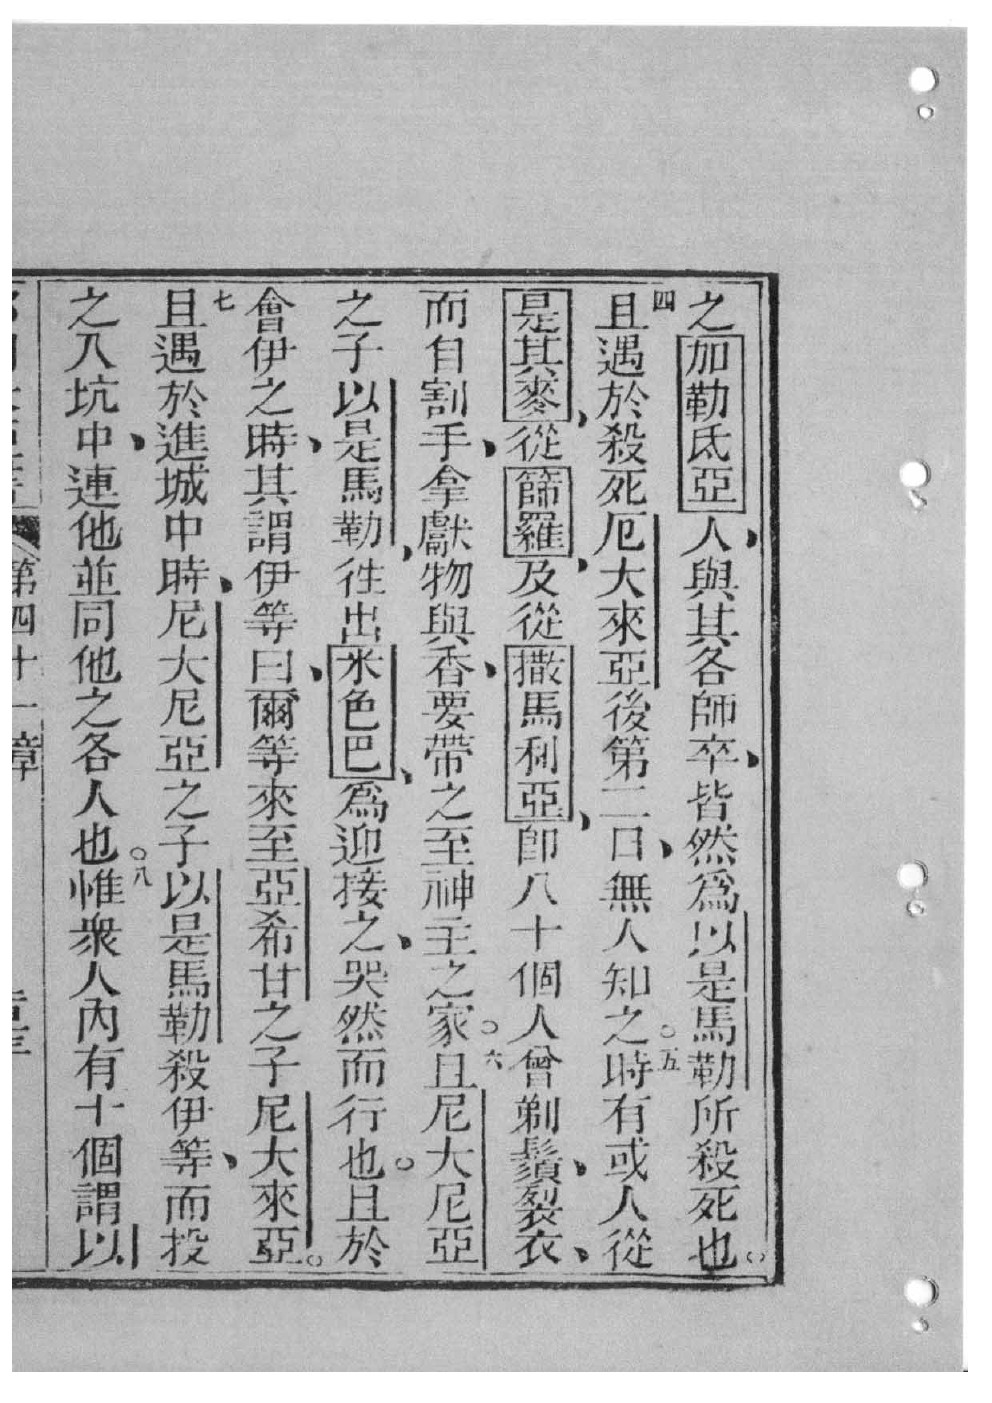 之加勒氐亞人與其各師卒皆然爲以是馬勒所殺死也。
四且遇於殺死厄大來亞後第二日無人知之。五時有或人從
是其麥從篩羅及從撒馬利亞卽八十個人曾剃鬚裂衣
而自割手拿獻物與香要帶之至神主之家。六且尼大尼亞
之子以是馬勒徃出米色巴爲迎接之哭然而行也。且於
會伊之時其謂伊等曰爾等來至亞希甘之子尼大來亞。
七且遇於進城中時尼大尼亞之子以是馬勒殺伊等而投
之入坑中連他並同他之各人也。八惟衆人內有十個謂以
第四十一章